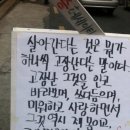 살아간다는 것은 뭔가
하나씩 고장난다는 말이다
고장난 그것을 안고
바라보며, 쓰다듬으며,
미워하고 사랑하면서
그것 역시